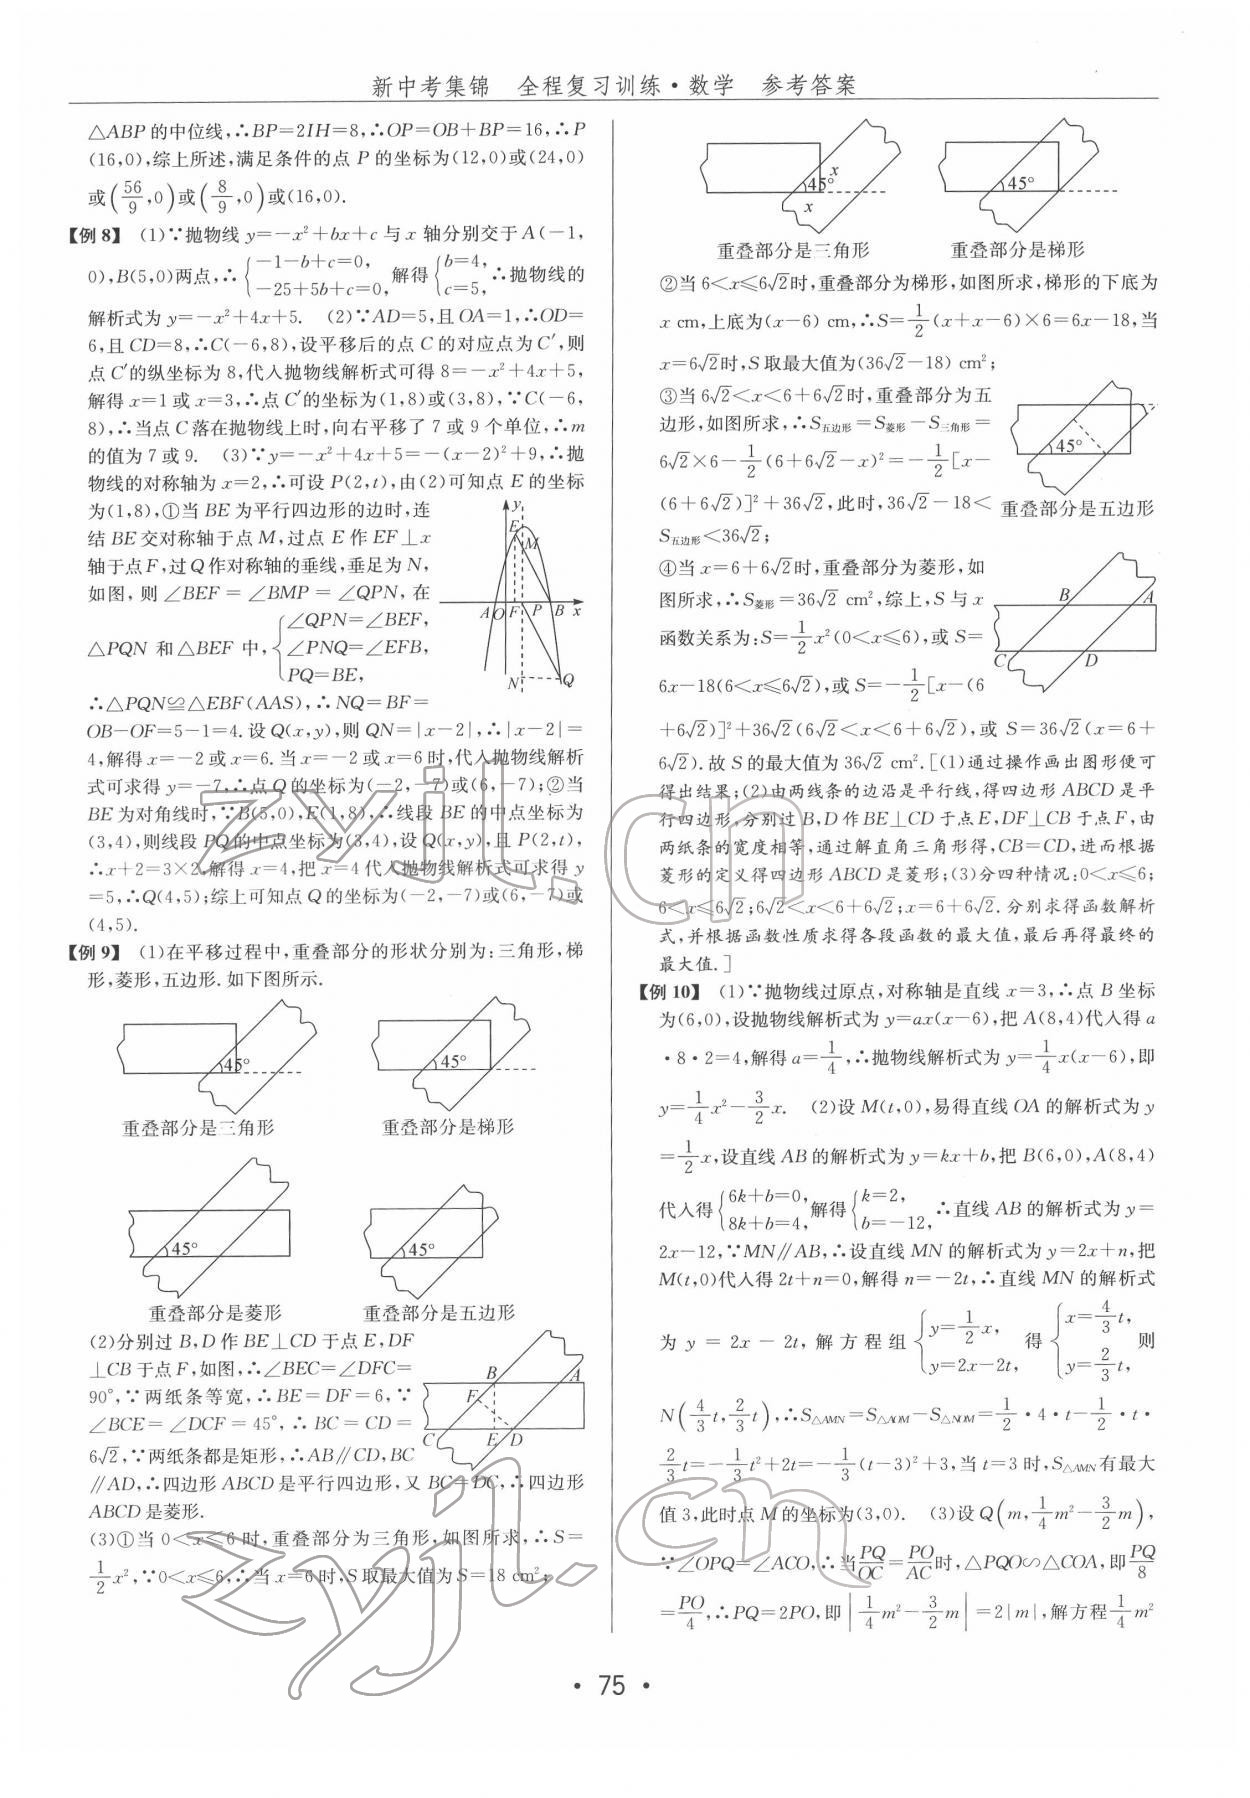 新中考集锦　全程复习训练·数学　参考答案
△ABP的中位线,∴BP=2IH=8,∴OP=OB+BP=16,∴P
(16,0),综上所述,满足条件的点 P 的坐标为(12,0)或(24,0)
或(56/9,0)或(8/9,0)或(16,0).
【例 8】 (1)∵抛物线 y=-x²+bx+c 与 x 轴分别交于 A(-1,
0),B(5,0)两点,∴{-1-b+c=0, -25+5b+c=0, 解得{b=4, c=5, ∴抛物线的
解析式为 y=-x²+4x+5. (2)∵AD=5,且 OA=1,∴OD=
6,且 CD=8,∴C(-6,8),设平移后的点 C 的对应点为 C′,则
点 C′的纵坐标为 8,代入抛物线解析式可得 8=-x²+4x+5,
解得 x=1 或 x=3,∴点 C′的坐标为(1,8)或(3,8),∵C(-6,
8),∴当点 C 落在抛物线上时,向右平移了 7 或 9 个单位,∴m
的值为 7 或 9. (3)∵y=-x²+4x+5=-(x-2)²+9,∴抛
物线的对称轴为 x=2,∴可设 P(2,t),由(2)可知点 E 的坐标
为(1,8),①当 BE 为平行四边形的边时,连
结 BE 交对称轴于点 M,过点 E 作 EF⊥x
轴于点 F,过 Q 作对称轴的垂线,垂足为 N,
如图, 则 ∠BEF = ∠BMP = ∠QPN, 在
△PQN 和 △BEF 中,{∠QPN=∠BEF, ∠PNQ=∠EFB, PQ=BE,
∴△PQN≌△EBF(AAS),∴NQ=BF=
OB-OF=5-1=4.设 Q(x,y),则 QN=|x-2|,∴|x-2|=
4,解得 x=-2 或 x=6.当 x=-2 或 x=6 时,代入抛物线解析
式可求得 y=-7,∴点 Q 的坐标为(-2,-7)或(6,-7);②当
BE 为对角线时,∵B(5,0),E(1,8),∴线段 BE 的中点坐标为
(3,4),则线段 PQ 的中点坐标为(3,4),设 Q(x,y),且 P(2,t),
∴x+2=3×2,解得 x=4,把 x=4 代入抛物线解析式可求得 y
=5,∴Q(4,5);综上可知点 Q 的坐标为(-2,-7)或(6,-7)或
(4,5).
y
E
M
A O F P B x
N Q
【例 9】 (1)在平移过程中,重叠部分的形状分别为:三角形,梯
形,菱形,五边形.如下图所示.
45° 45°
重叠部分是三角形 重叠部分是梯形
45° 45°
重叠部分是菱形 重叠部分是五边形
(2)分别过 B,D 作 BE⊥CD 于点 E,DF
⊥CB 于点 F,如图,∴∠BEC=∠DFC=
90°,∵两纸条等宽,∴BE=DF=6,∵
∠BCE = ∠DCF = 45°, ∴ BC = CD =
6√2,∵两纸条都是矩形,∴AB∥CD,BC
∥AD,∴四边形 ABCD 是平行四边形,又 BC=DC,∴四边形
ABCD 是菱形.
B A
F
C E D
(3)①当 0<x≤6 时,重叠部分为三角形,如图所求,∴S=
1/2 x²,∵0<x≤6,∴当 x=6 时,S 取最大值为=18 cm²;
x
45°
x
45°
重叠部分是三角形 重叠部分是梯形
②当 6<x≤6√2时,重叠部分为梯形,如图所求,梯形的下底为
x cm,上底为(x-6) cm,∴S=1/2(x+x-6)×6=6x-18,当
x=6√2时,S 取最大值为(36√2-18) cm²;
③当 6√2<x<6+6√2时,重叠部分为五
边形,如图所求,∴S五边形=S菱形-S三角形=
6√2×6-1/2(6+6√2-x)²=-1/2[x-
(6+6√2)]²+36√2,此时,36√2-18<
S五边形<36√2;
45°
重叠部分是五边形
④当 x=6+6√2时,重叠部分为菱形,如
图所求,∴S菱形=36√2 cm²,综上,S 与 x
函数关系为:S=1/2 x²(0<x≤6),或 S=
6x-18(6<x≤6√2),或 S=-1/2[x-(6
+6√2)]²+36√2(6√2<x<6+6√2),或 S=36√2(x=6+
6√2).故 S 的最大值为 36√2 cm².[(1)通过操作画出图形便可
得出结果;(2)由两线条的边沿是平行线,得四边形 ABCD 是平
行四边形,分别过 B,D 作 BE⊥CD 于点 E,DF⊥CB 于点 F,由
两纸条的宽度相等,通过解直角三角形得,CB=CD,进而根据
菱形的定义得四边形 ABCD 是菱形;(3)分四种情况:0<x≤6;
6<x≤6√2;6√2<x<6+6√2;x=6+6√2.分别求得函数解析
式,并根据函数性质求得各段函数的最大值,最后再得最终的
最大值.]
B A
C D
【例 10】 (1)∵抛物线过原点,对称轴是直线 x=3,∴点 B 坐标
为(6,0),设抛物线解析式为 y=ax(x-6),把 A(8,4)代入得 a
·8·2=4,解得 a=1/4,∴抛物线解析式为 y=1/4 x(x-6),即
y=1/4 x²-3/2 x. (2)设 M(t,0),易得直线 OA 的解析式为 y
=1/2 x,设直线 AB 的解析式为 y=kx+b,把 B(6,0),A(8,4)
代入得{6k+b=0, 8k+b=4, 解得{k=2, b=-12, ∴直线 AB 的解析式为 y=
2x-12,∵MN∥AB,∴设直线 MN 的解析式为 y=2x+n,把
M(t,0)代入得 2t+n=0,解得 n=-2t,∴直线 MN 的解析式
为 y = 2x - 2t, 解 方 程 组 {y=1/2 x, y=2x-2t, 得 {x=4/3 t, y=2/3 t, 则
N(4/3 t,2/3 t),∴S△AMN=S△AOM-S△NOM=1/2·4·t-1/2·t·
2/3 t=-1/3 t²+2t=-1/3(t-3)²+3,当 t=3 时,S△AMN有最大
值 3,此时点 M 的坐标为(3,0). (3)设 Q(m,1/4 m²-3/2 m),
∵∠OPQ=∠ACO,∴当PQ/OC=PO/AC时,△PQO∽△COA,即PQ/8
=PO/4,∴PQ=2PO,即|1/4 m²-3/2 m|=2|m|,解方程1/4 m²
· 75 ·
zyjl.cn
zyjl.cn